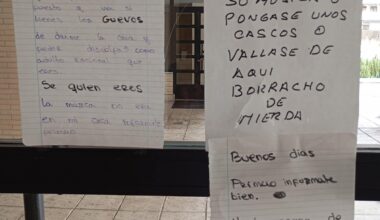 puesto y vas si
tienes los GUEVOS
de darme la cara y
pedir disculpas como
adulto racional que
eres.
Se quien eres
la musica no era
en mi casa
PÓNGASE UNOS
CASCOS O
VALLASE DE
AQUI
BORRACHO
DE
MIERDA
Buenos días
Permiso informate
bien.
de